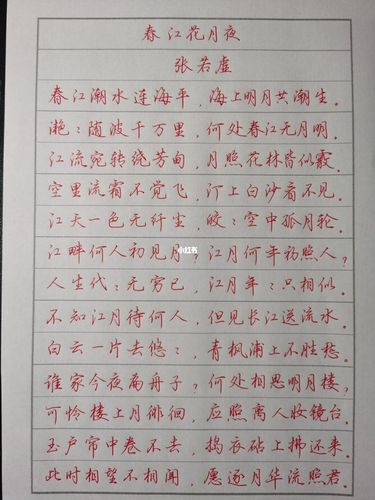 春江花月夜
张若虚
春江潮水连海平,海上明月共潮生.
滟:随波千万里,何处春江无月明.
江流宛转绕芳甸,月照花林皆似霰.
空里流霜不觉飞,汀上白沙看不见.
江天一色无纤尘,皎:空中孤月轮.
江畔何人初见月,江月何年初照人?
小红书
人生代:无穷已,江月年:只相似.
不知江月待何人,但见长江送流水.
白云一片去悠:,青枫浦上不胜愁.
谁家今夜扁舟子?何处相思明月楼,
可怜楼上月徘徊,应照离人妆镜台.
玉户帘中卷不去,捣衣砧上拂还来.
此时相望不相闻,愿逐月华流照君.